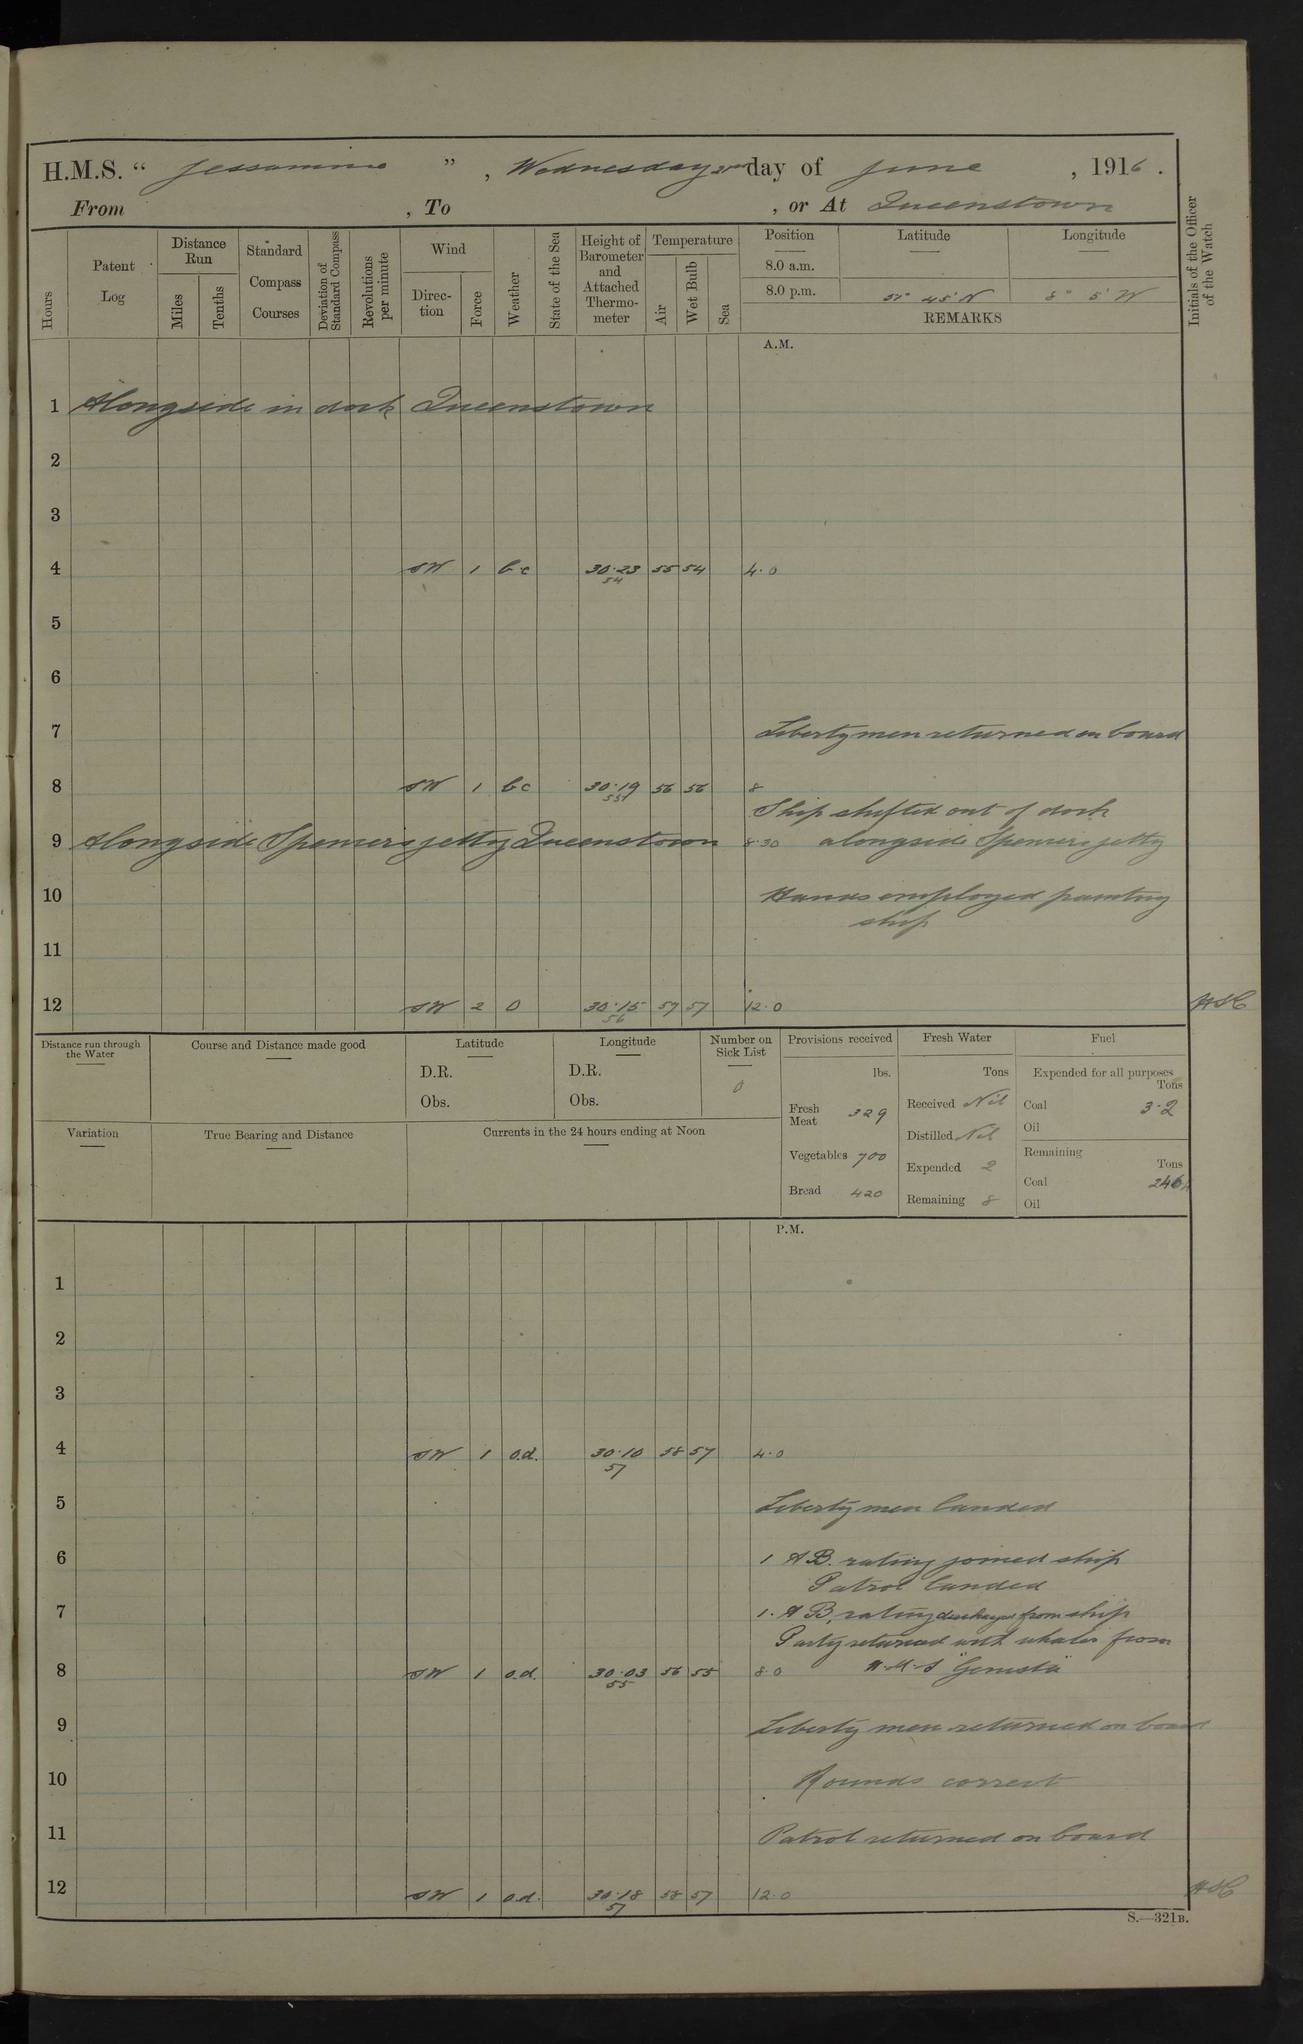 H.M.S. “ Jessamine ” , Wednesday 21st day of June , 1916 .
From , To , or At Queenstown
Hours
Patent Log
Distance Run
Miles
Tenths
Standard Compass Courses
Deviation of Standard Compass
Revolutions per minute
Wind
Direc-tion
Force
Weather
State of the Sea
Height of Barometer and Attached Thermo-meter
Temperature
Air
Wet Bulb
Sea
Position
8.0 a.m.
8.0 p.m.
Latitude
51° 45' N
Longitude
8° 5' W
REMARKS
Initials of the Officer of the Watch
A.M.
1 Alongside in dock Queenstown
2
3
4 SW 1 b.c 30.23 55 54 4.0
54
5
6
7 Liberty men returned on board
8 SW 1 b c 30.19 56 56 8
55
Ship shifted out of dock
9 Alongside Spencers jetty Queenstown 8.30 alongside Spencers jetty
10 Hands employed painting
ship
11
12 SW 2 O 30.15 59 57 12.0
56
Distance run through the Water
Course and Distance made good
Latitude
D.R.
Obs.
Longitude
D.R.
Obs.
Number on Sick List
0
Provisions received
lbs.
Fresh Meat 329
Vegetables 700
Bread 420
Fresh Water
Tons
Received Nil
Distilled Nil
Expended 2
Remaining 8
Fuel
Expended for all purposes
Tons
Coal 3.2
Oil
Remaining
Tons
Coal
Oil
Variation
True Bearing and Distance
Currents in the 24 hours ending at Noon
P.M.
1
2
3
4 SW 1 o.d. 30.10 58 57 4.0
57
5 Liberty men landed
6 1 A B. rating joined ship
Patrol landed
7 1. A B, rating discharged from ship
Party returned with whaler from
8 SW 1 o.d. 30.03 56 55 8.0 H.M.S "Genista"
55
9 Liberty men returned on board
10 Rounds correct
11 Patrol returned on board
12 SW 1 o.d. 30.18 58 57 12.0
57
S.—321B.